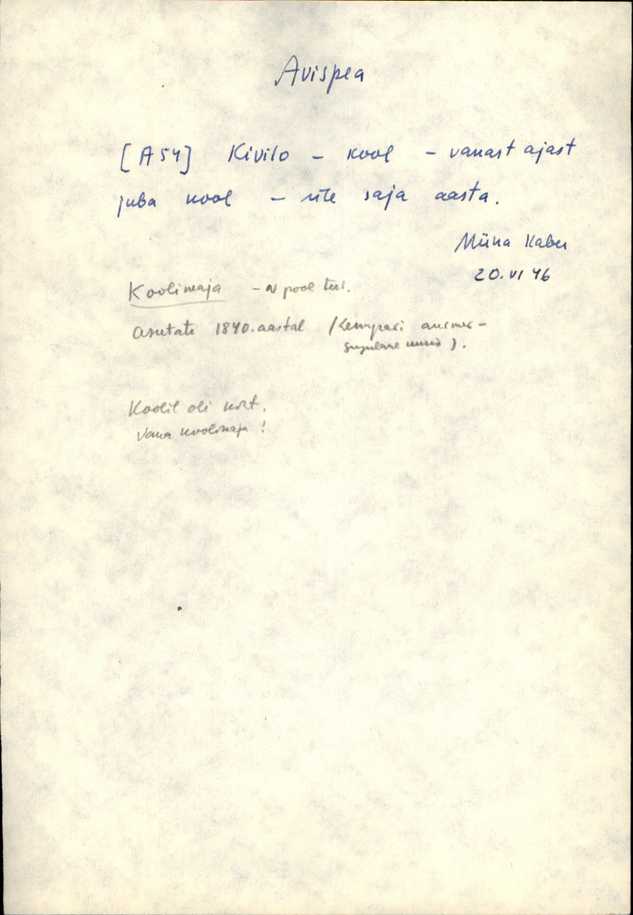 Avispea
[A54] Kivilo – kool – vanast ajast
juba kool – üle saja aasta.
Miina Kaber
20. VI 46
Koolimaja – N pool teed.
Asutati 1840. aastal (Kempari
Koolil oli kõrt.
Vana koolimaja !